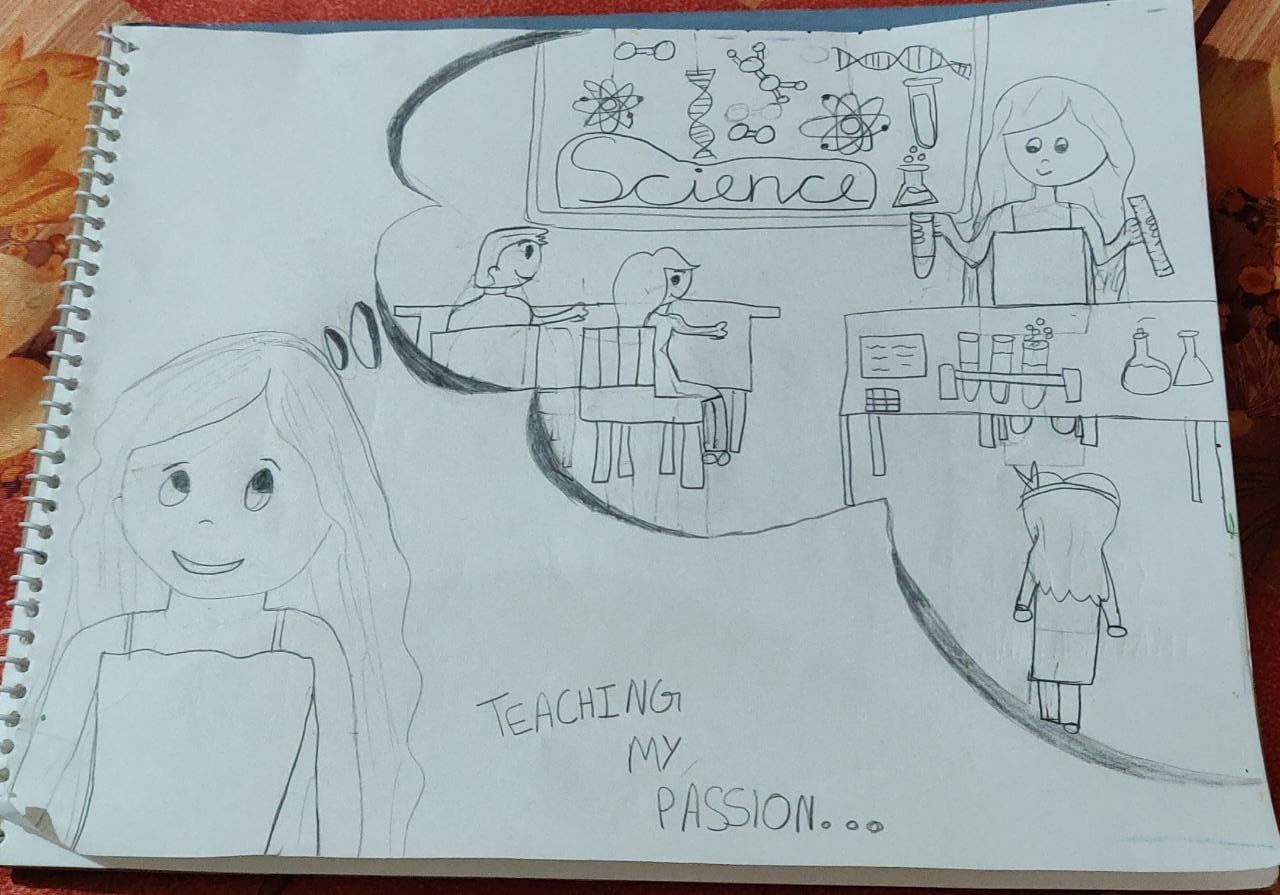 Science
TEACHING
MY
PASSION...